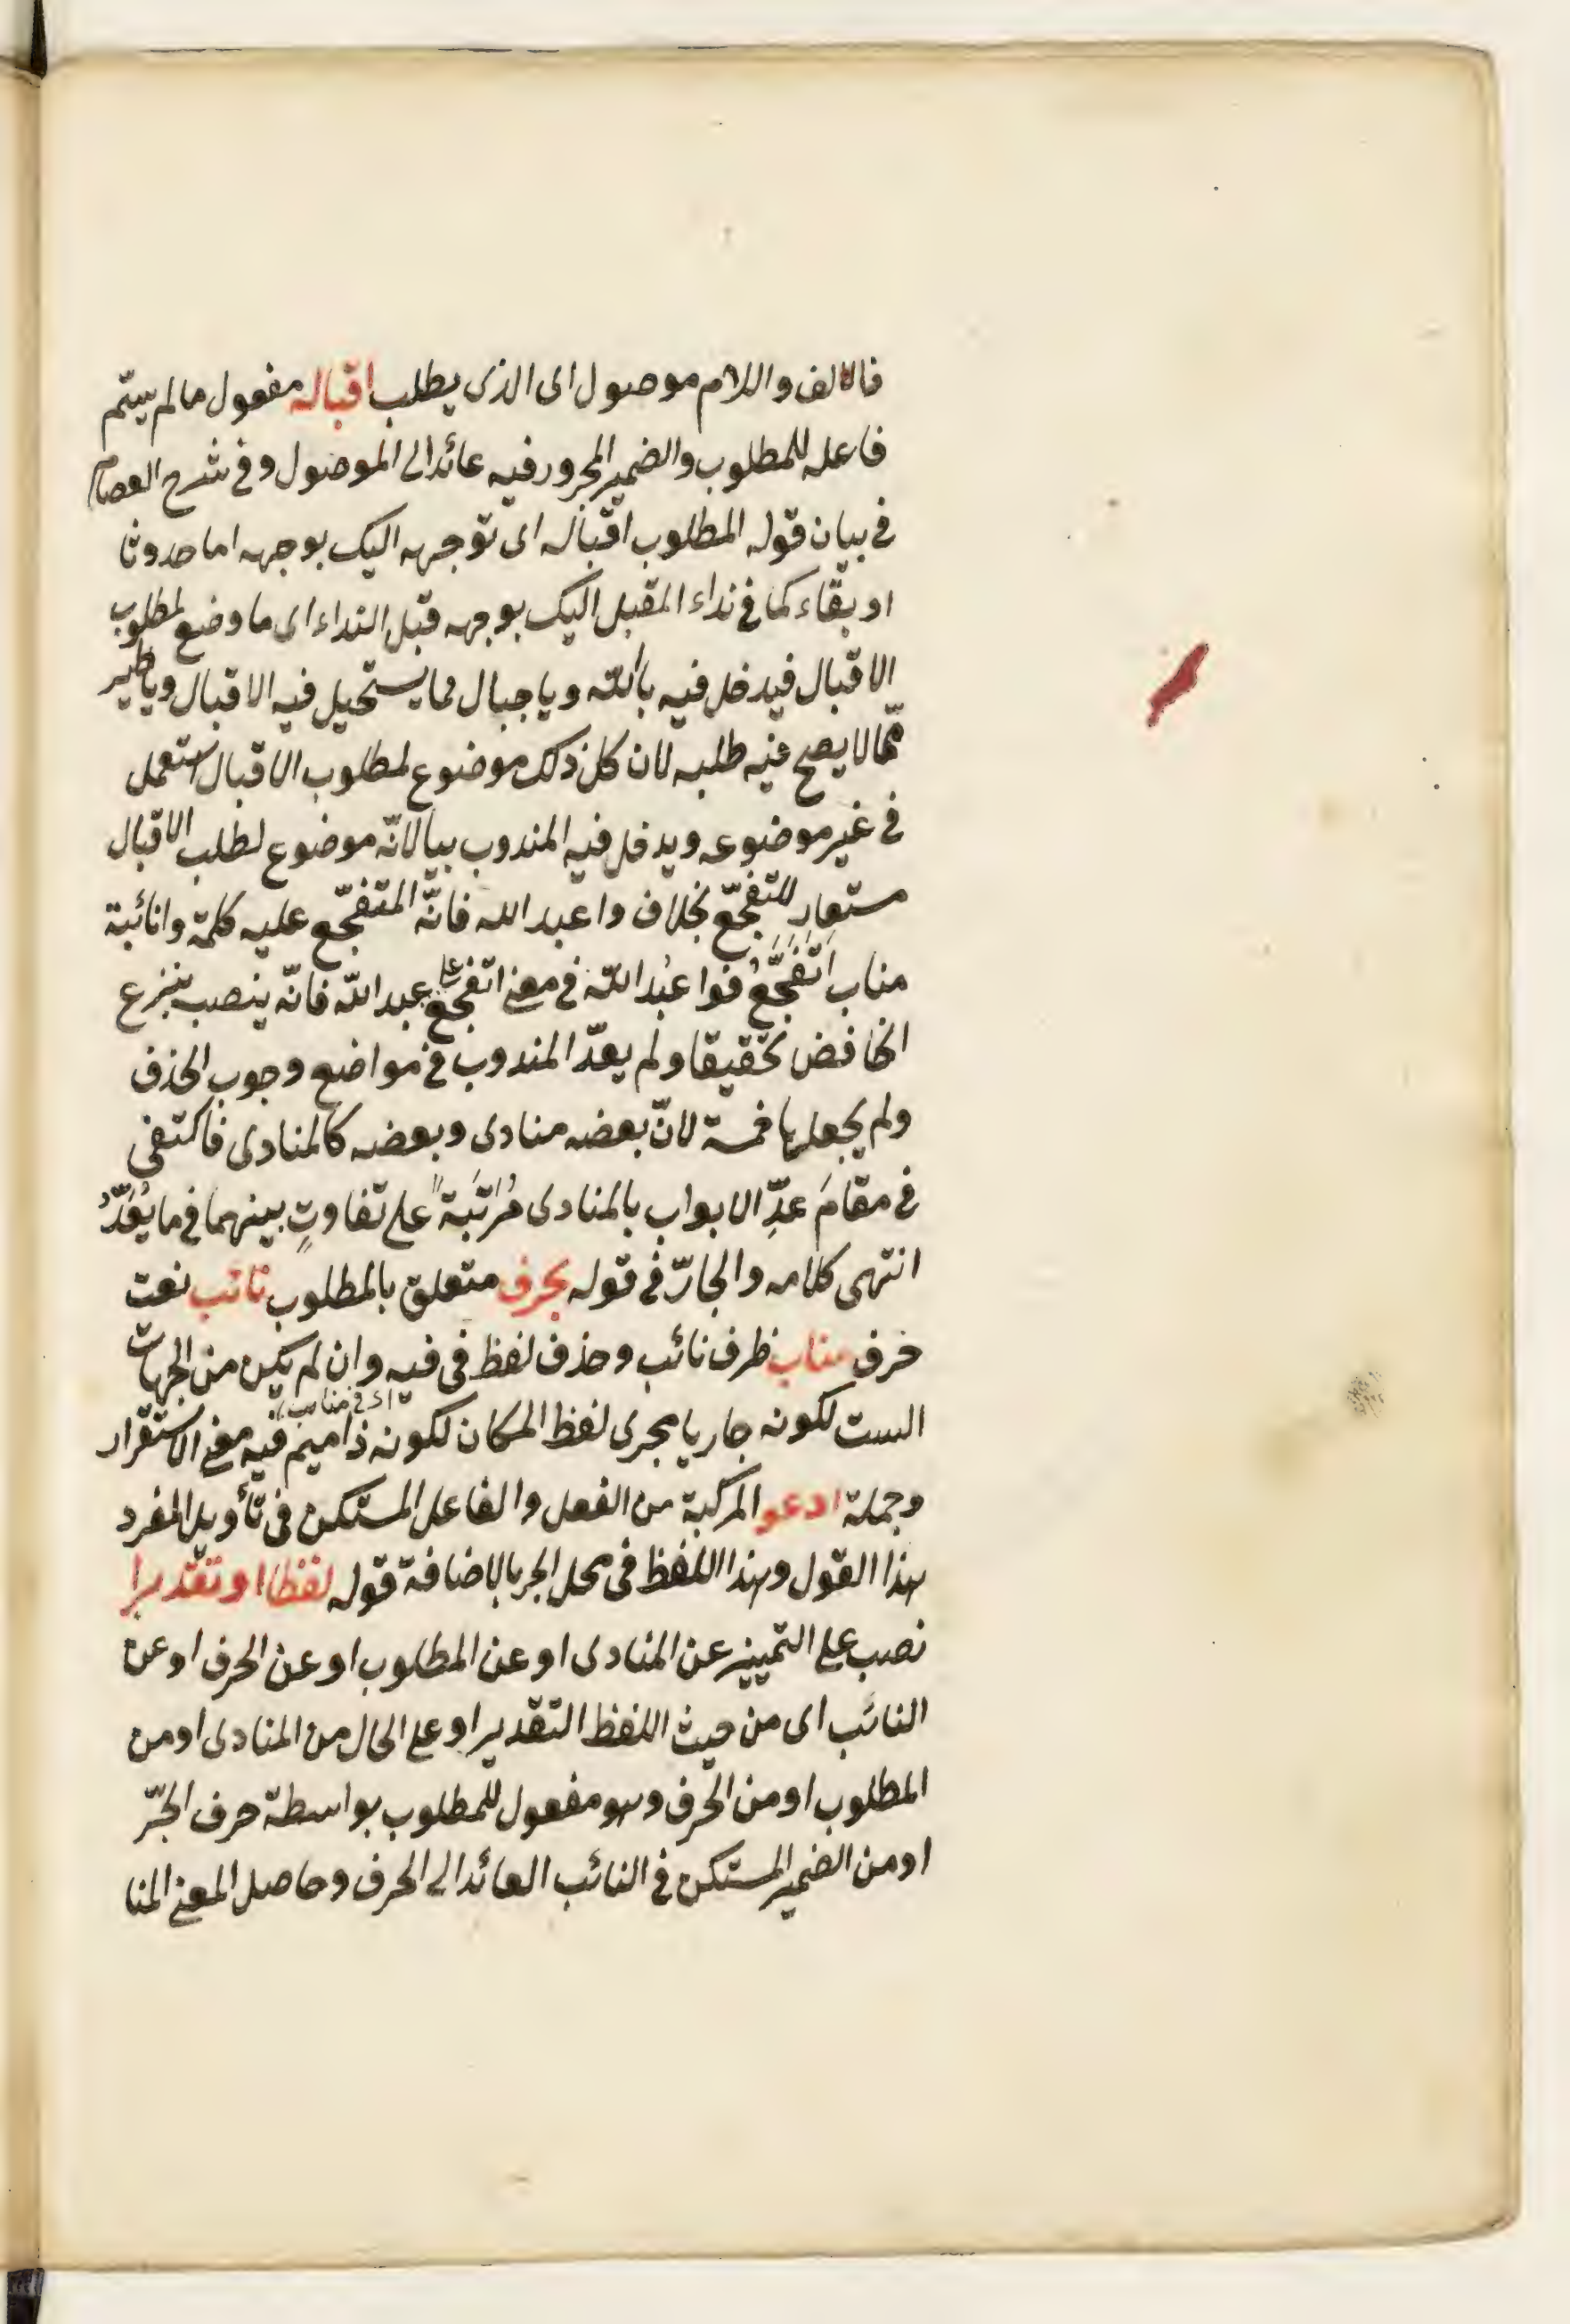 فالالف واللام موصول اى الذى يطلب اقباله مفعول مالم يسمّ
فاعله للمطلوب والضمير المجرور فيه عائد الى الموصول وفى شرح العصام
فى بيان قوله المطلوب اقباله اى توجهه اليك بوجهه اما حدوثا
او بقاء كما فى نداء المقبل اليك بوجهه قبل النداء اى ما وضع لمطلوب
الاقبال فيدخل فيه يا الله ويا جبال مما يستحيل فيه الاقبال ويا طير
ممّا لا يصح فيه طلبه لان كل ذلك موضوع لمطلوب الاقبال استعمل
فى غير موضوعه ويدخل فيه المندوب بيا لانّه موضوع لطلب الاقبال
مستعار للتفجّع بخلاف وا عبد الله فانّه المتفجّع عليه كلمة وا نائبة
مناب اَتَفَجَّعُ فوا عبْد الله فى معنى اتفجّع على عبد الله فانّه ينصب بنزع
الخافض تحقيقا ولم يعدّ المندوب فى مواضع وجوب الحذف
ولم يجعلها خمسة لانّ بعضه منادى وبعضه كالمنادى فاكتفى
فى مقام عدِّ الابواب بالمنادى مُرَتَّبَةً على تفاوتٍ بينهما فى ما يُعَدُّ
انتهى كلامه والجارّ فى قوله بحرف متعلق بالمطلوب نائب نعت
حرف مناب ظرف نائب وحذف لفظ فى فيه وان لم يكن من الجهات
الست لكونه جاريا مجرى لفظ المكان لكونه ذا ميم فيه معنى الاستقرار
اى فى مناب
وجملة ادعو المركبة من الفعل والفاعل المستكن فى تأويل المفرد
هذا القول وهذا اللفظ فى محل الجر بالاضافة قوله لفظا او تقديرا
نصب على التمييز عن المنادى او عن المطلوب او عن الحرف او عن
النائب اى من حيث اللفظ التقدير او على الحال من المنادى او من
المطلوب او من الحرف وهو مفعول للمطلوب بواسطة حرف الجرّ
او من الضمير المستكن فى النائب العائد الى الحرف وحاصل المعنى المنا